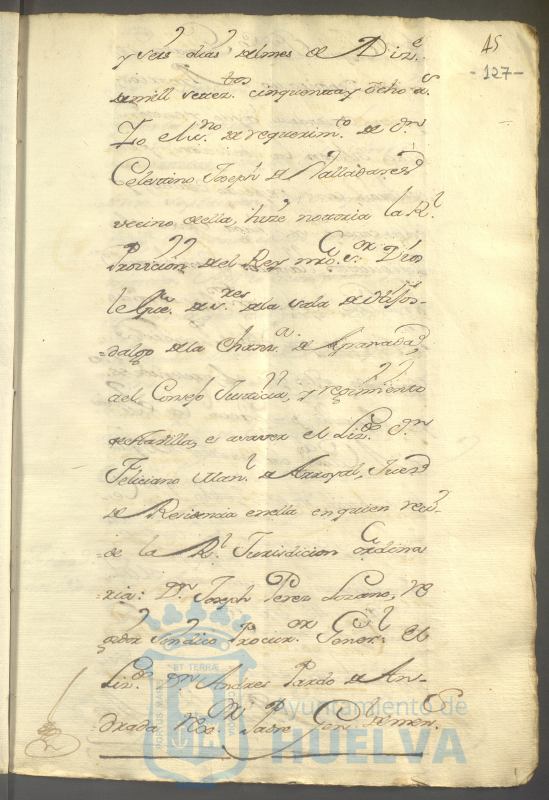 15
-127-
y seis dias del mes de Diz.e
de mill settez.tos cinquenta y ocho a.s
Yo el ess.no de requerim.to de D.n
Celestino Joseph de Valladares
vecino de ella, hize notoria la R.l
Provision del Rey nro. s.or Dios
le Gûe. de s.res de la sala de Hijos-
=dalgo de la Chanz.a de Granada
al Consejo Justicia, y regimiento
es a saver el Liz.do D.n
Feliciano Man.l de Arroyal, Juez
de Residencia en ella en quien reci-
=de la R.l Jurisdicion ordina
=ria: D.n Joseph Perez Lozano, Re
gidor Sindico Procur.or Gener.l el
Liz.do D.n Andres Pardo de An-
drada
ET TERRAE
PORTUS MARIS
Ayuntamiento de
HUELVA